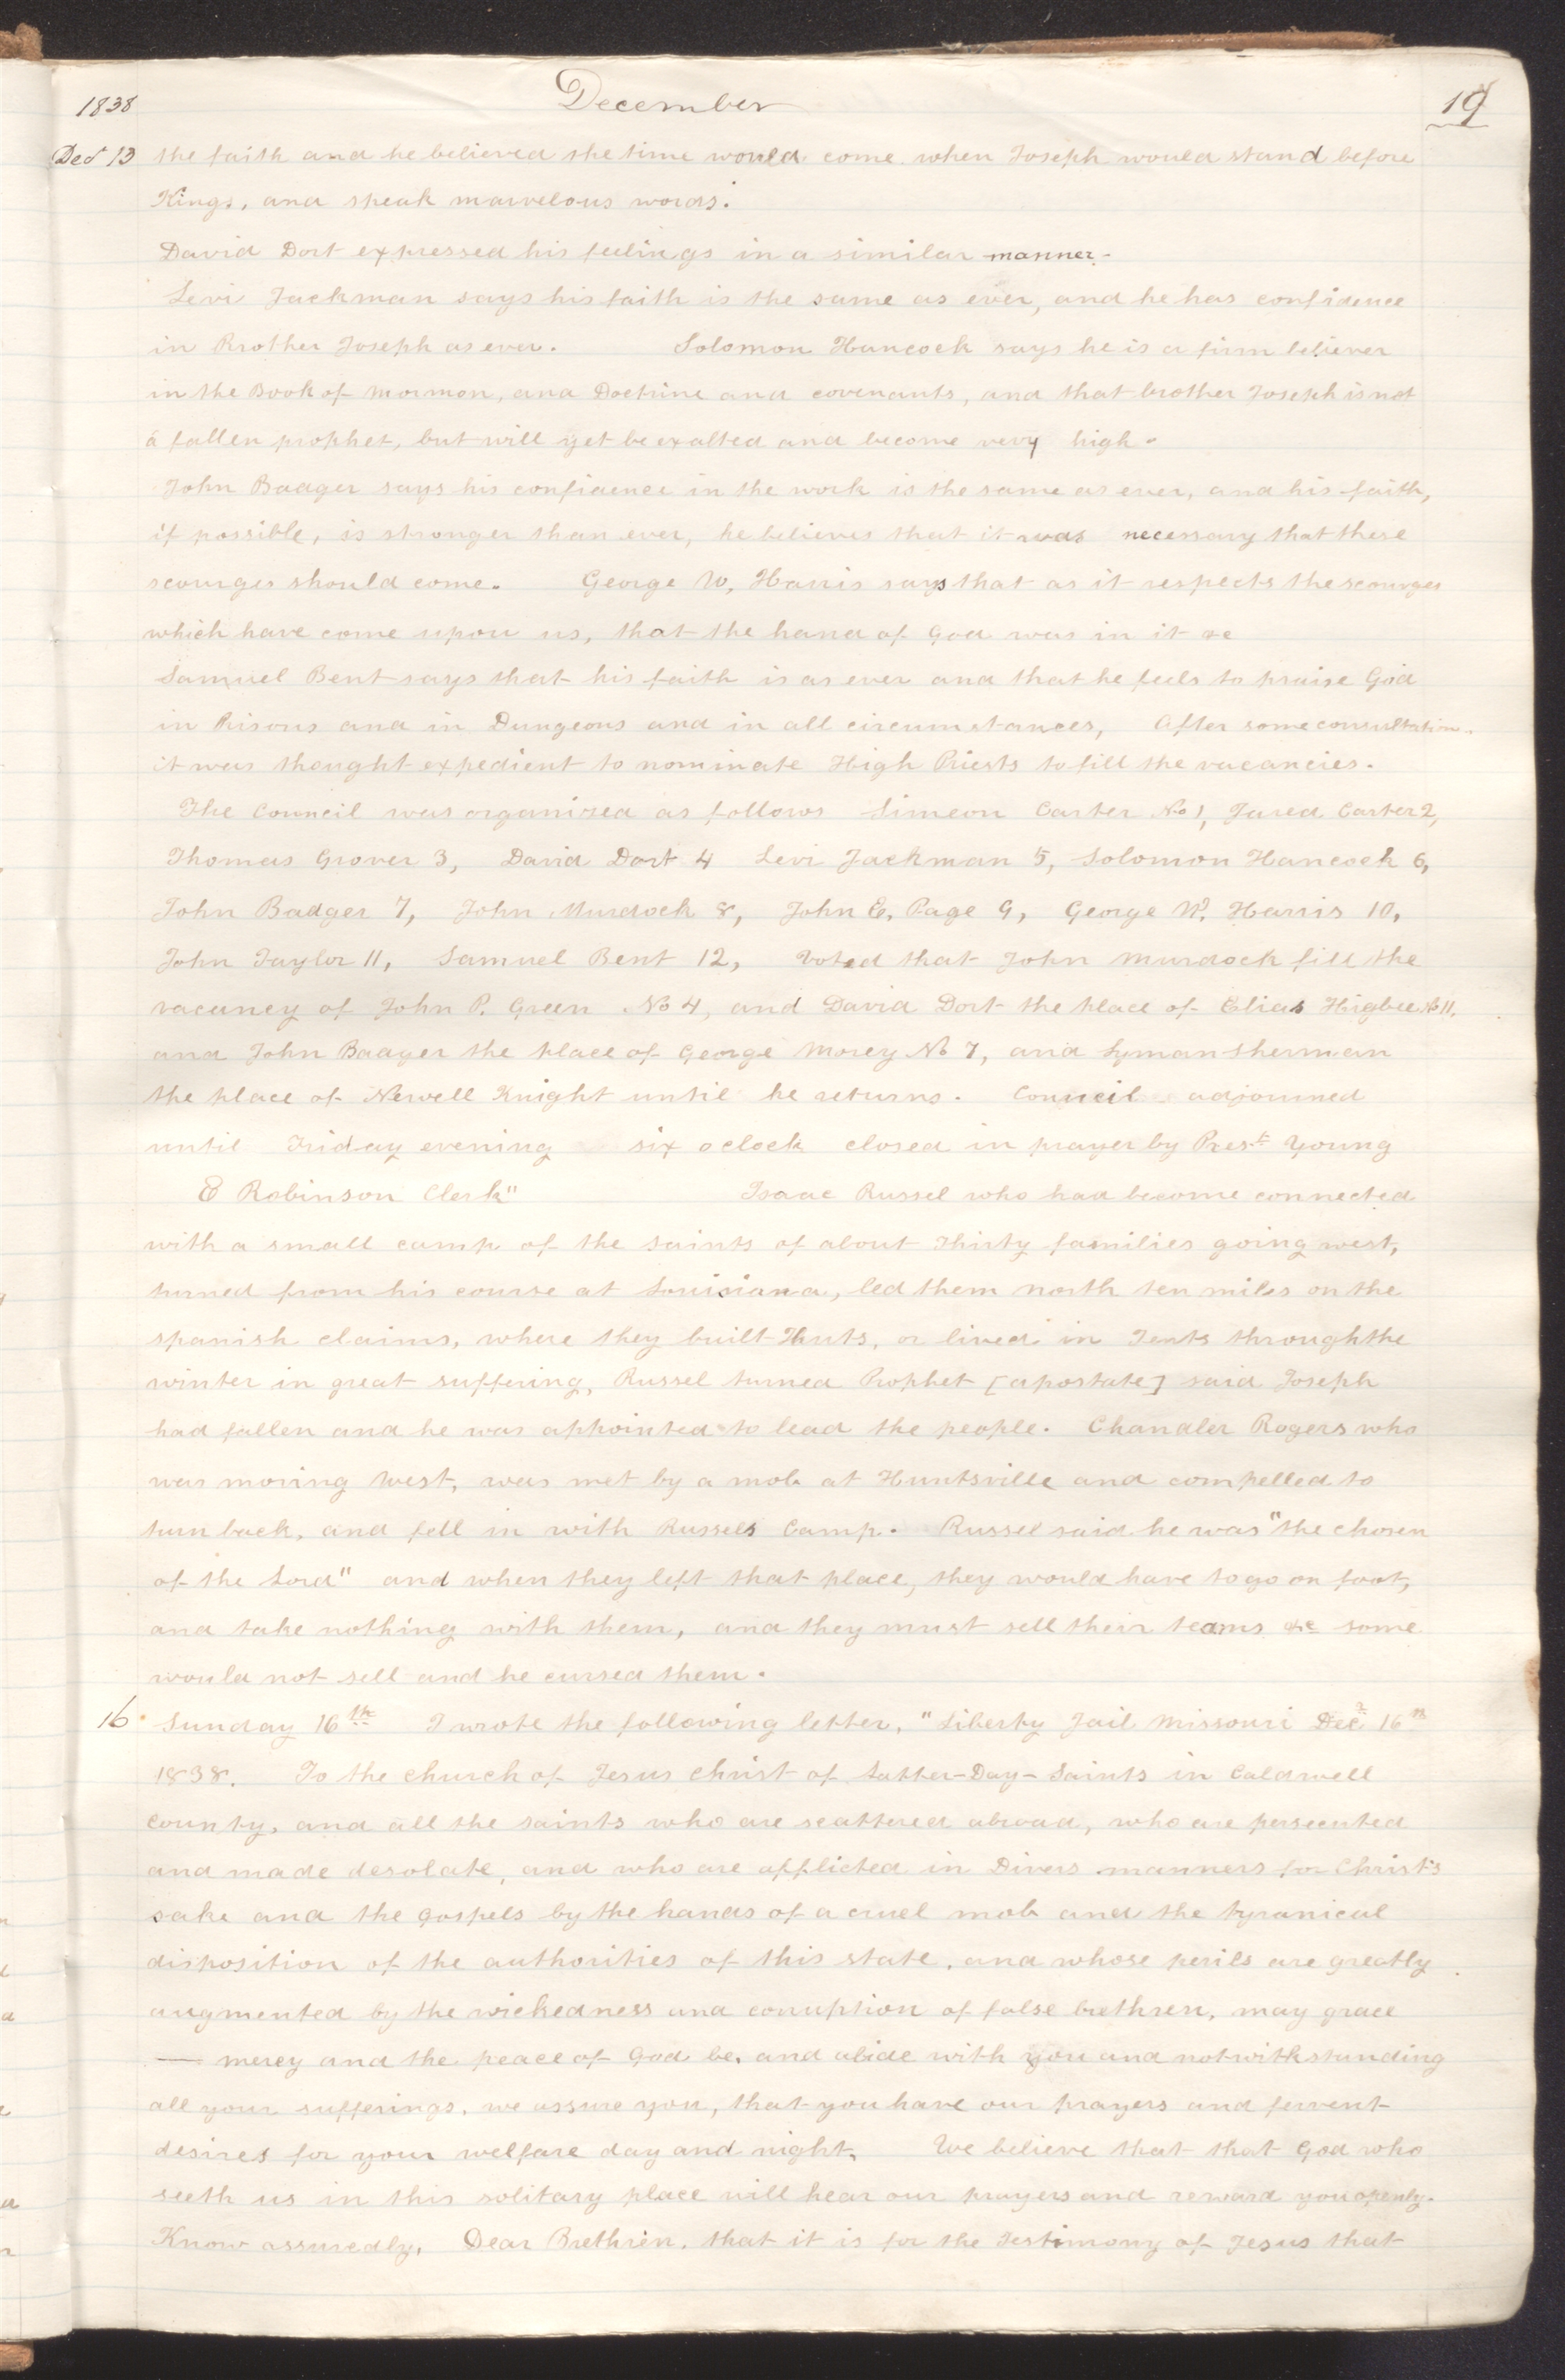 1838 December 19
Dec 13 the faith and he believed the time would come when Joseph would stand before
Kings, and speak marvelous words.
David Dort expressed his feelings in a similar manner-
Levi Jackman says his faith is the same as ever, and he has confidence
in Brother Joseph as ever. Solomon Hancock says he is a firm believer
in the Book of Mormon, and Doctrine and covenants, and that brother Joseph is not
a fallen prophet, but will yet be exalted and become very high.
John Badger says his confidence in the work is the same as ever, and his faith,
if possible, is stronger than ever, he believes that it was necessary that these
scourges should come. George W, Harris says that as it respects the scourges
which have come upon us, that the hand of God was in it &c
Samuel Bent says that his faith is as ever and that he feels to praise God
in Prisons and in Dungeons and in all circumstances, After some consultation,
it was thought expedient to nominate High Priests to fill the vacancies.
The Council was organized as follows Simeon Carter No 1, Jared Carter 2,
Thomas Grover 3, David Dort 4 Levi Jackman 5, Solomon Hancock 6,
John Badger 7, John Murdock 8, John E, Page 9, George W. Harris 10,
John Taylor 11, Samuel Bent 12, Voted that John Murdock fill the
vacancy of John P. Green No 4, and David Dort the place of Elias Higbee No 11.
and John Badger the place of George Morey No 7, and Lyman Sherman
the place of Newell Knight until he returns. Council adjourned
until Friday evening six o clock closed in prayer by Prest Young
E Robinson Clerk" Isaac Russel who had become connected
with a small camp of the saints of about Thirty families going west,
turned from his course at Louisiana, led them north ten miles on the
spanish claims, where they built Huts, or lived in Tents through the
winter in great suffering, Russel turned Prophet [apostate] said Joseph
had fallen and he was appointed to lead the people. Chandler Rogers who
was moving West, was met by a mob at Huntsville and compelled to
turn back, and fell in with Russels Camp. Russel said he was "the chosen
of the Lord" and when they left that place, they would have to go on foot,
and take nothing with them, and they must sell their teams &c some
would not sell and he cursed them.
16 Sunday 16th I wrote the following letter, "Liberty Jail Missouri Decr 16th
1838. To the church of Jesus Christ of Latter-Day-Saints in Caldwell
County, and all the saints who are scattered abroad, who are persecuted
and made desolate, and who are afflicted in Divers manners for Christ's
sake and the gospels by the hands of a cruel mob and the tyranical
disposition of the authorities of this state, and whose perils are greatly
augmented by the wickedness and corruption of false brethren, may grace
— mercy and the peace of God be, and abide with you and notwithstanding
all your sufferings, we assure you, that you have our prayers and fervent
desires for your welfare day and night. We believe that that God who
seeth us in this solitary place will hear our prayers and reward you openly.
Know assuredly, Dear Brethren, that it is for the Testimony of Jesus that